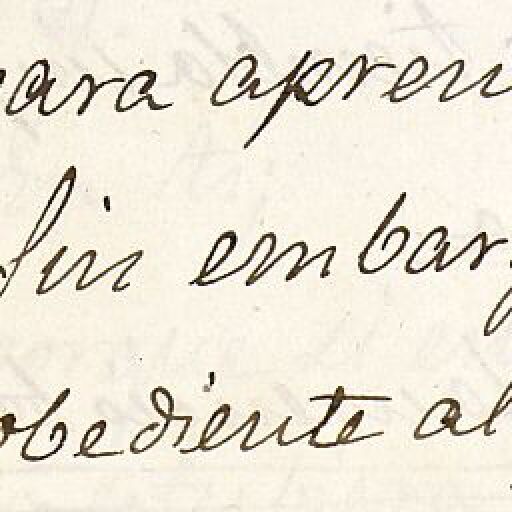 para apren
sin embarg
obediente al